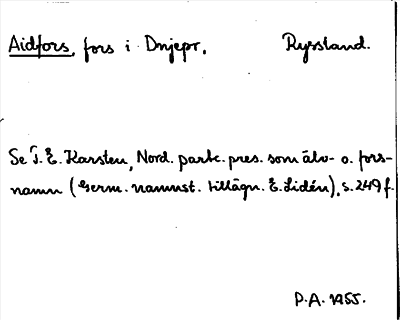 Aidfors, fors i Dnjepr. Ryssland.
Se T. E. Karsten, Nord. partc. pres. som älv- o. fors-
namn (Germ. namnst. tillägn. E. Lidén), s. 249 f.
P.A. 1955.